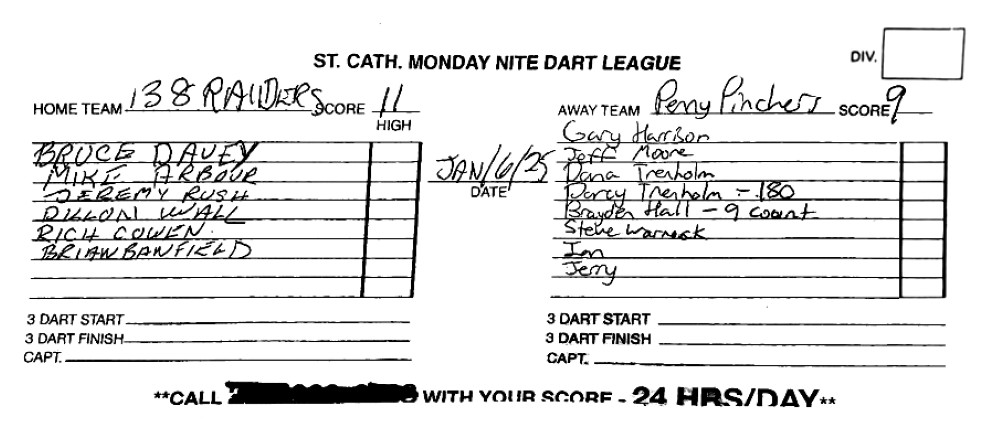 ST. CATH. MONDAY NITE DART LEAGUE
DIV.
HOME TEAM 138 RAIDERS SCORE 11
HIGH
BRUCE DAVEY
MIKE ARBOUR
JEREMY RUSH
DILLON WALL
RICH COWEN
BRIAN BANFIELD
3 DART START
3 DART FINISH
CAPT.
JAN/6/25
DATE
AWAY TEAM Penny Pinchers SCORE 9
Gary Harrison
Jeff Moore
Dana Trenholm
Darcy Trenholm - 180
Brayden Hall - 9 count
Steve Warnock
Ian
Jerry
3 DART START
3 DART FINISH
CAPT.
**CALL WITH YOUR SCORE - 24 HRS/DAY**